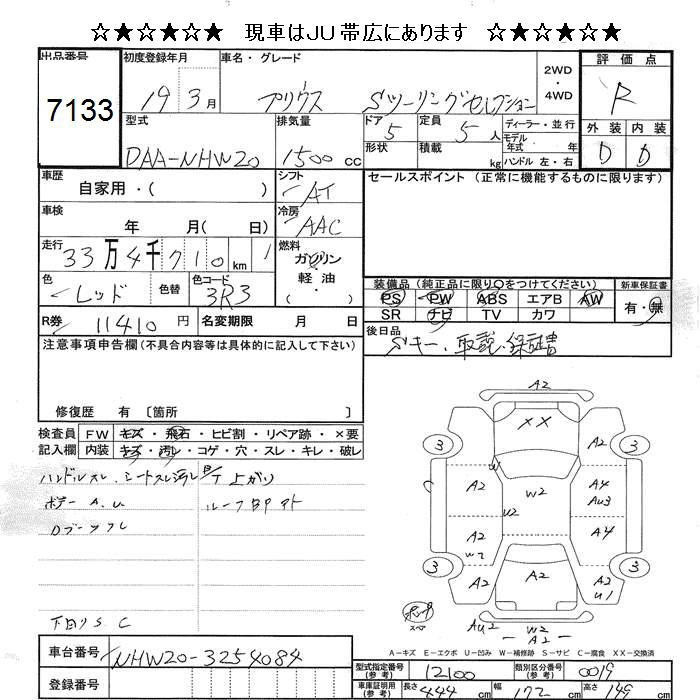 ☆★☆★☆★ 現車はJU帯広にあります ☆★☆★☆★
出品番号 7133
初度登録年月 19 3月
車名・グレード プリウス Sツーリングセレクション
2WD・4WD
評価点 R
外装 内装
D D
型式 DAA-NHW20
排気量 1500cc
ドア 5
形状
定員 5人
積載 kg
ディーラー・並行
モデル年式 年式
ハンドル 左・右
車歴 自家用・( )
シフト AT
セールスポイント (正常に機能するものに限ります)
車検 年 月( 日)
冷房 AAC
走行 33万4千710km
燃料 ガソリン・軽油・( )
色 レッド 色替
色コード 3R3
装備品(純正品に限り○をつけてください)
PS PW ABS エアB AW
SR ナビ TV カワ
新車保証書 有・無
R券 11410円
名変期限 月 日
後日品 Sキー、取説、保証書
注意事項申告欄(不具合内容等は具体的に記入して下さい)
修復歴 有〔箇所 〕
検査員記入欄
FW キズ・飛石・ヒビ割・リペア跡・×要
内装 キズ・汚レ・コゲ・穴・スレ・キレ・破レ
ハンドルスレ、シートスレ汚レ
上がり
ボデー A.U
下回り S.C
A2
XX
3 3
A2 A2
W2
U2
A4
AU3
C
A2
A4
W2
A2
3 3
A2
A2
U1
スペア
AU2
W2
A2
A-キズ E-エクボ U-凹み W-補修跡 S-サビ C-腐食 XX-交換済
車台番号 NHW20-3254084
登録番号
型式指定番号(参考) 12100
類別区分番号(参考) 0019
車庫証明用(参考) 長さ 444cm 幅 172cm 高さ 149cm